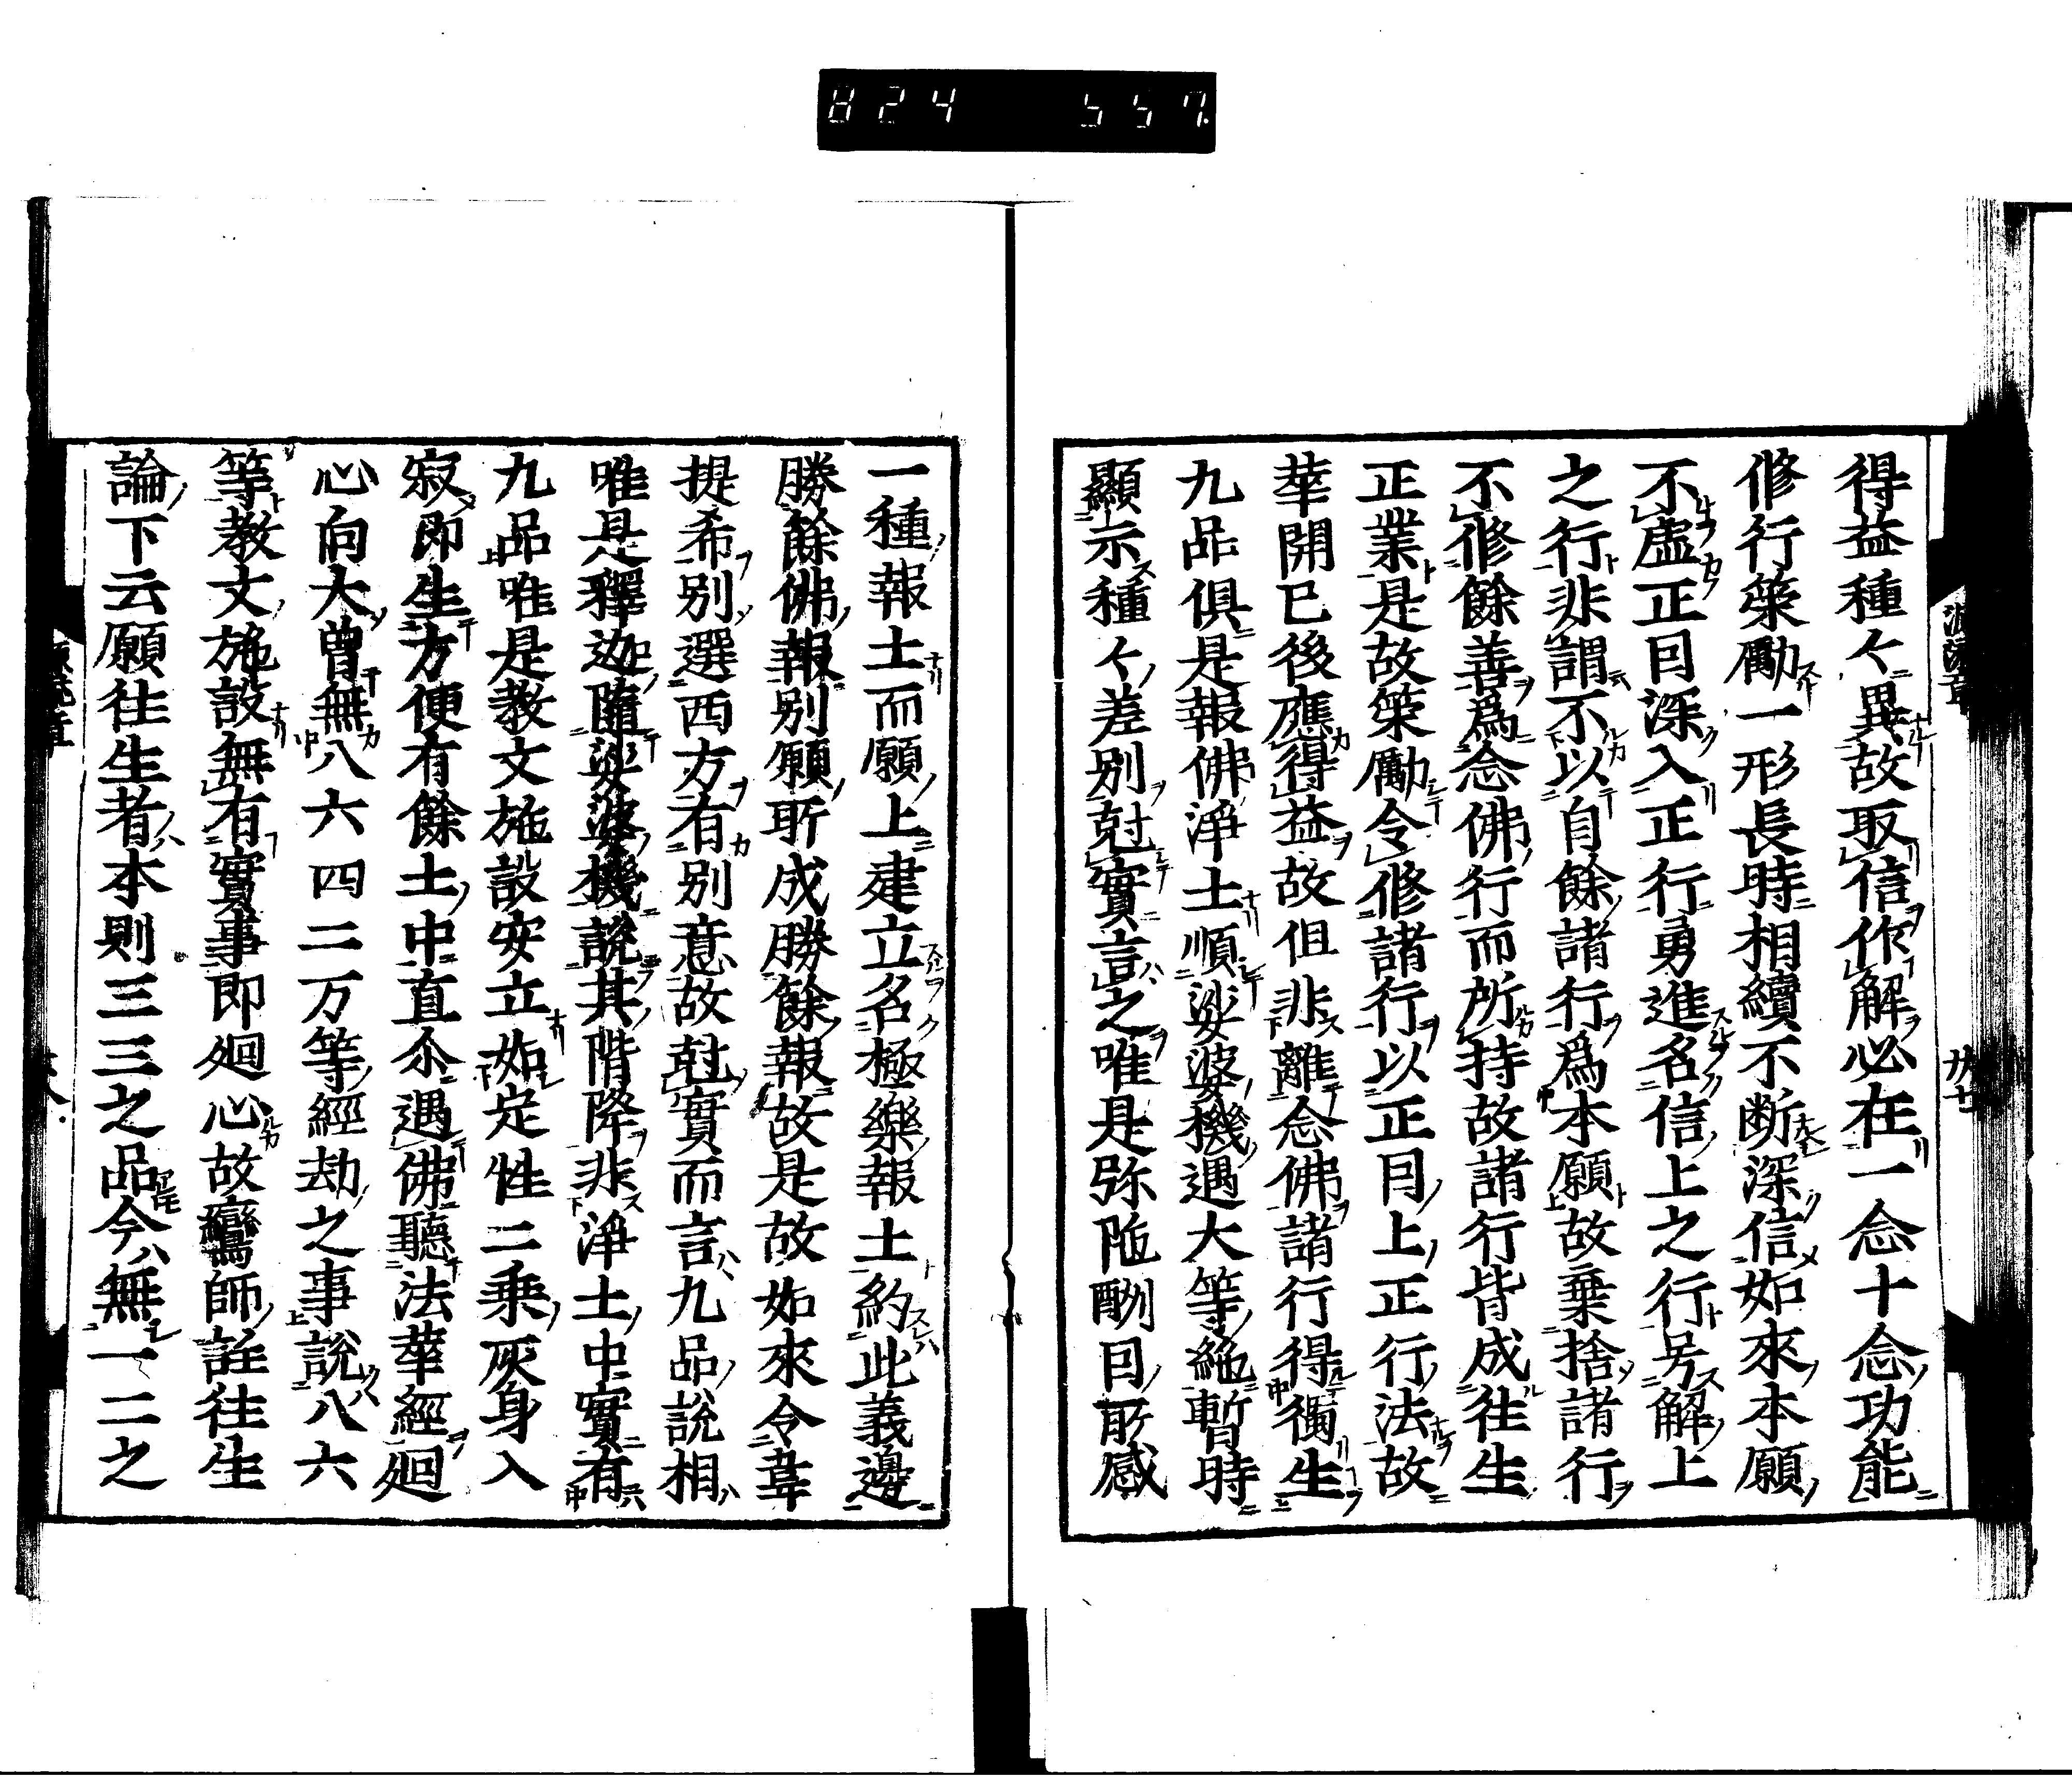 824 557
得益種々異故取信作解必在一念十念功能
修行策勵一形長時相續不断深信如來本願
不虚正因深入正行勇進名信上之行另解上
之行非謂不以自餘諸行爲本願故棄捨諸行
不修餘善爲念佛行而所持故諸行皆成往生
正業是故策勵令修諸行以正因上正行法故
華開已後應得益故但非離念佛諸行得獨生
九品俱是報佛淨土順娑婆機遇大等絶暫時
顯示種々差別尅實言之唯是弥陁酬因所感
一種報土而願上建立名極樂報土約此義邊
勝餘佛報別願所成勝餘報故是故如來令韋
提希別選西方有別意故尅實而言九品說相
唯是釋迦隨娑婆機說其階降非淨土中實有
九品唯是教文施設安立如定性二乘灰身入
寂即生方便有餘土中直尒遇佛聽法華經廻
心向大曽無八六四二万等經劫之事說八六
等教文施設無有實事即廻心故鸞師註往生
論下云願往生者本則三三之品今無一二之